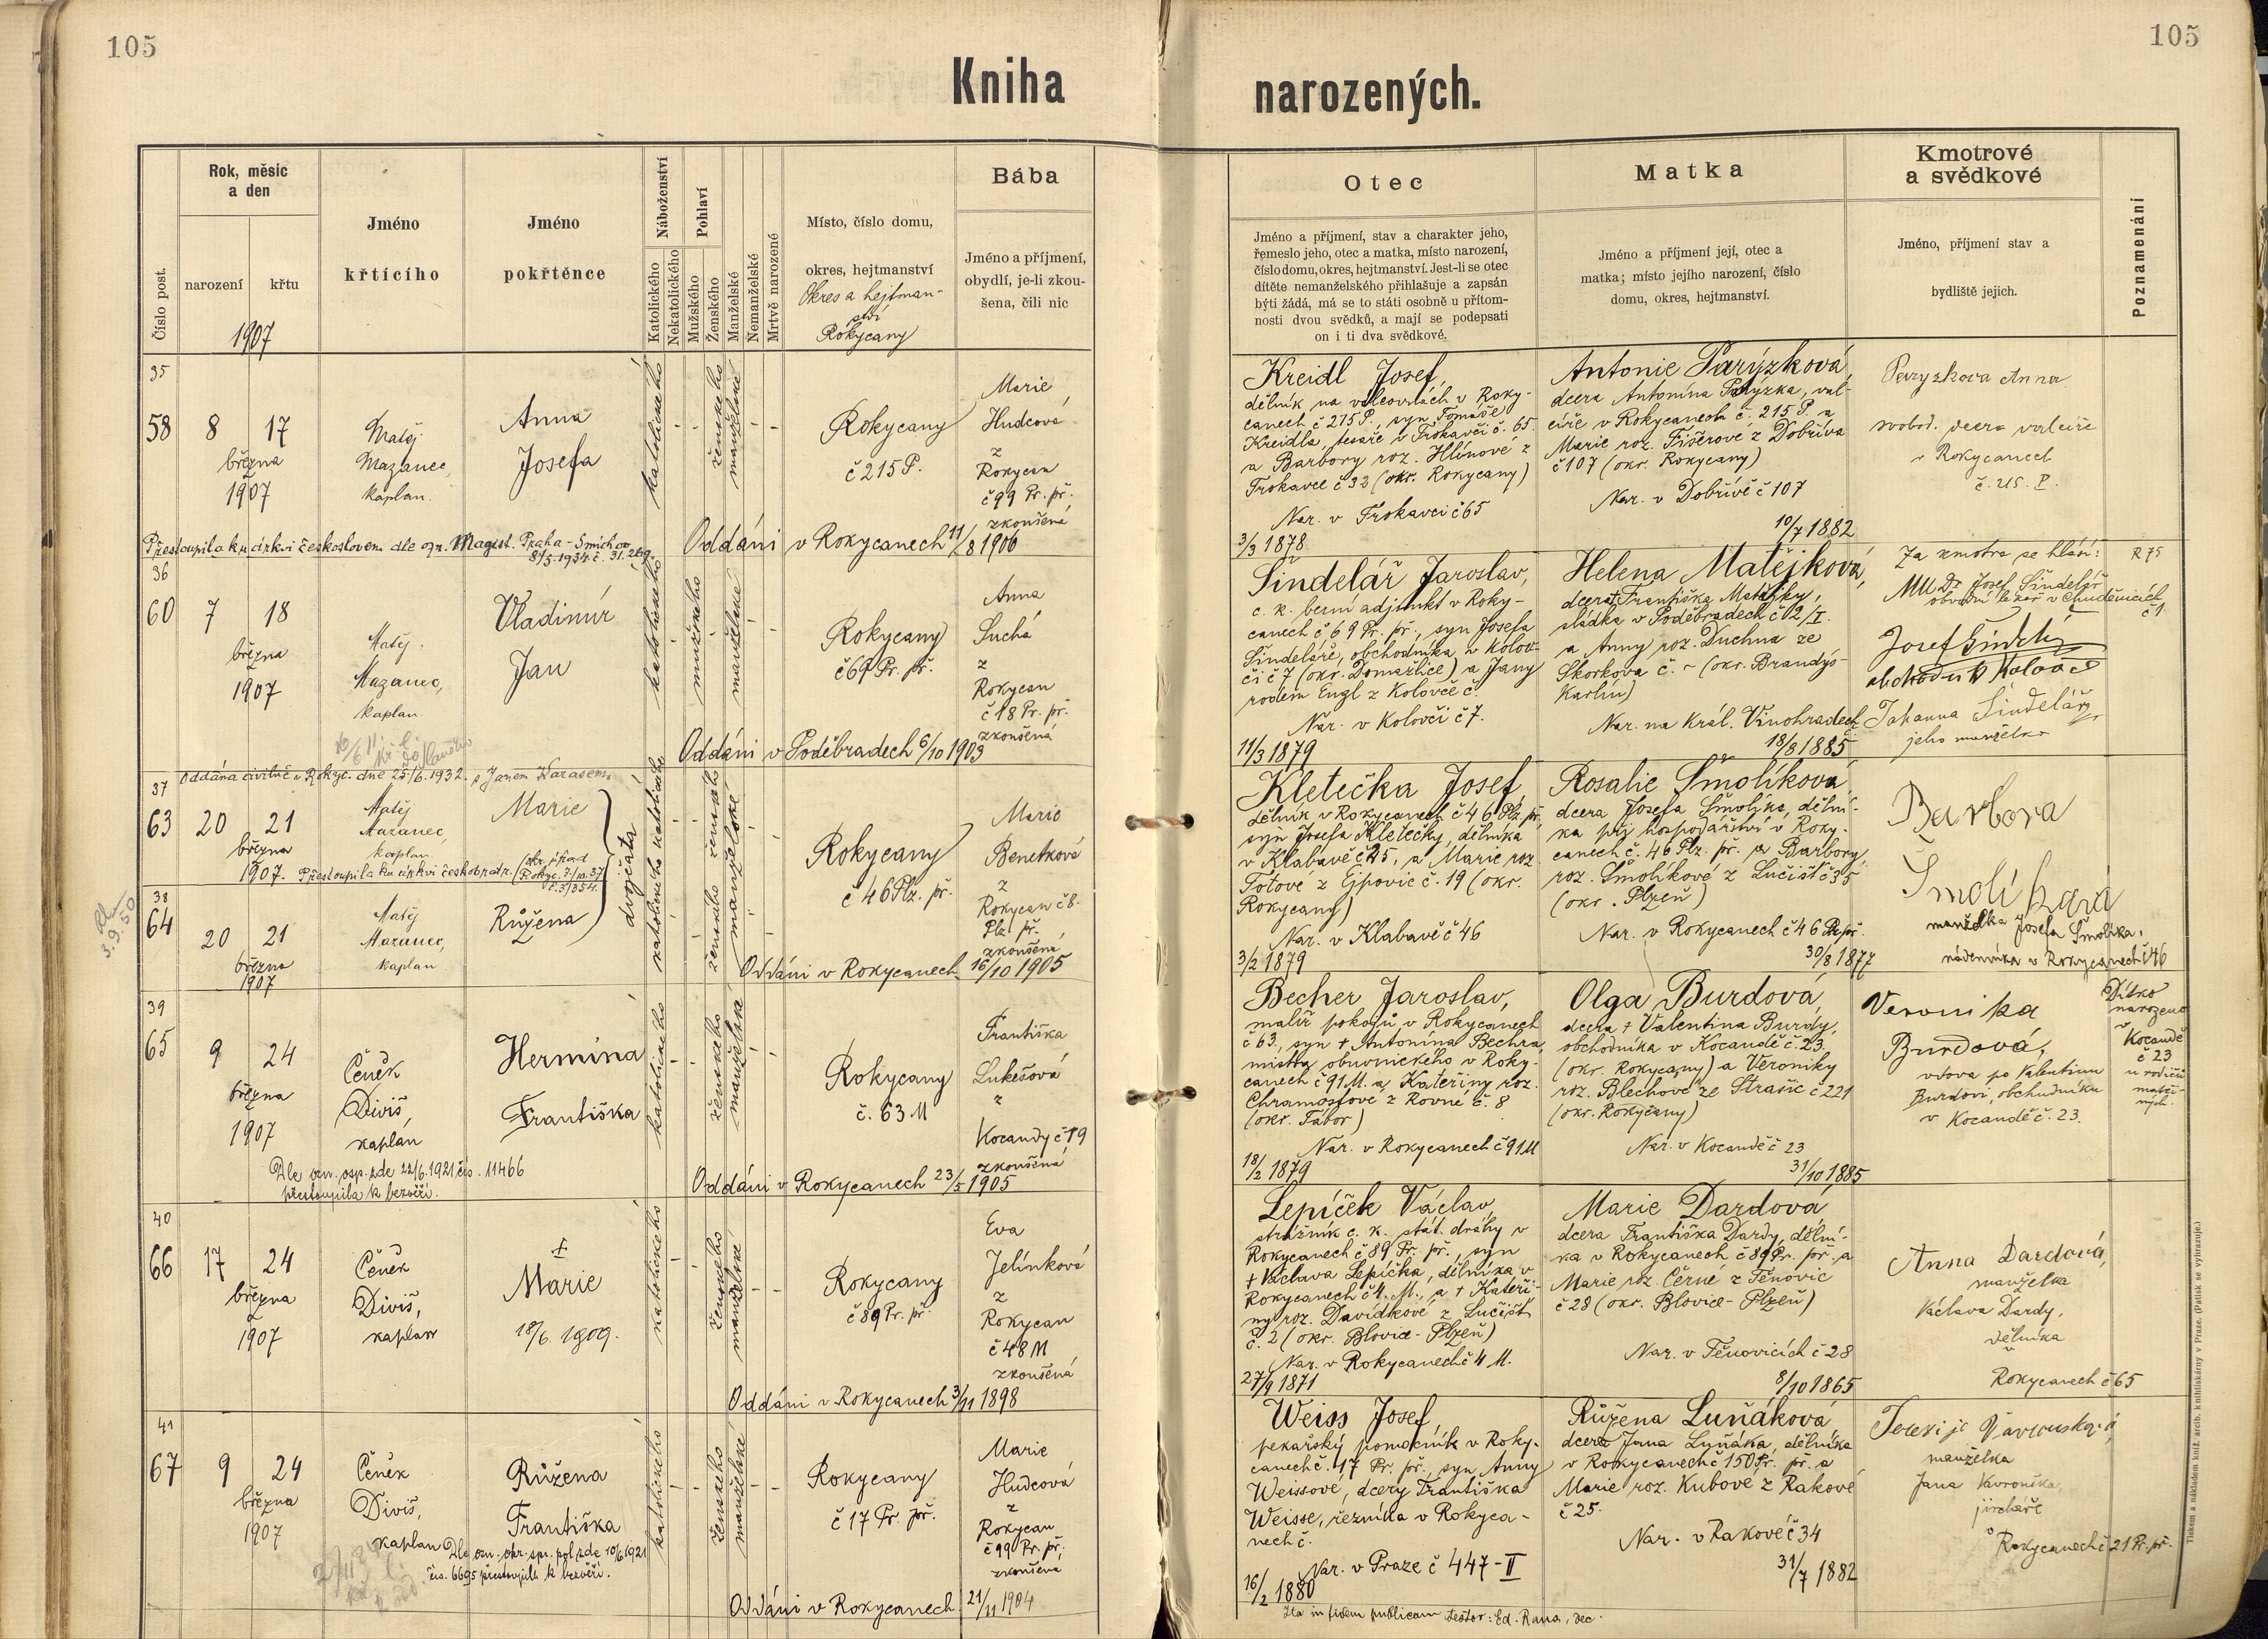 105
105
Kniha
narozených.
Číslo post.
Rok, měsíc
a den
narození
křtu
1907
Jméno
křtícího
Jméno
pokřtěnce
Náboženství
Katolického
Nekatolického
Pohlaví
Mužského
Ženského
Manželské
Nemanželské
Mrtvě narozené
Místo, číslo domu,
okres, hejtmanství
Okres a hejtman-
ství
Rokycany
Bába
Jméno a příjmení,
obydlí, je-li zkou-
šena, čili nic
Otec
Jméno a příjmení, stav a charakter jeho,
řemeslo jeho, otec a matka, místo narození,
číslo domu, okres, hejtmanství. Jest-li se otec
dítěte nemanželského přihlašuje a zapsán
býti žádá, má se to státi osobně u přítom-
nosti dvou svědků, a mají se podepsati
on i ti dva svědkové.
Matka
Jméno a příjmení její, otec a
matka; místo jejího narození, číslo
domu, okres, hejtmanství.
Kmotrové
a svědkové
Jméno, příjmení stav a
bydliště jejich.
Poznamenání
35
58
8
17
března
1907
Matěj
Mazanec,
kaplan.
Anna
Josefa
katolického
ženského
manželské
Rokycany
č 215 P.
Marie
Hudcová
z
Rokycan
č 99 Pr. př.
zkoušená
Přestoupila ku církvi českosloven. dle ozn. Magist. Praha - Smíchov
8/5. 1934. č. 31.269.
Oddáni v Rokycanech 11/8 1906
Kreidl Josef,
dělník na válcovnách v Roky-
canech č 215 P., syn Tomáše
Kreidla, tesaře v Trokavci č. 65
a Barbory roz. Hlínové z
Trokavce č 32 (okr. Rokycany)
Nar. v Trokavci č 65
3/3 1878
Antonie Parýzková,
dcera Antonína Parýzka, val-
cíře v Rokycanech č. 215 P. a
Marie roz. Fišerové z Dobříva
č 107 (okr. Rokycany)
Nar. v Dobřívě č 107
10/7 1882
Paryzkova Anna
svobod. dcera valcíře
v Rokycanech
č. 215. P.
36
60
7
18
března
1907
Matěj
Mazanec,
kaplan.
Vladimír
Jan
katolického
mužského
manželské
Rokycany
č 69 Pr. př.
Anna
Suchá
z
Rokycan
č 18 Pr. př.
zkoušená
Oddáni v Poděbradech 6/10 1903
Šindelář Jaroslav,
c. k. berní adjunkt v Roky-
canech č 69 Pr. př., syn Josefa
Šindeláře, obchodníka v Kolov-
či č 7 (okr. Domažlice) a Jany
rodem Engl z Kolovče č.
Nar. v Kolovči č 7.
11/3 1879
Helena Matějková,
dcera † Františka Matějky,
sládka v Poděbradech č 2/I.
a Anny roz. Duchna ze
Skorkova č. – (okr. Brandýs-
Karlín)
Nar. na Král. Vinohradech
18/8 1885
Za kmotra se hlásí:
MUDr Josef Šindelář
obvodní lékař v Chuděnicích
č 1.
Josef Šindelář
obchodník Koloveč
Johanna Šindelář
jeho manželka
R 75
37
Oddána civilně v Rokyc. dne 25/6. 1932. s Janem Karasem.
63
20
21
března
1907.
Matěj
Mazanec,
kaplan.
Marie
Přestoupila ku církvi českobratr.
dvojčata
38
64
20
21
března
1907
Matěj
Mazanec,
kaplan
Růžena
3. 9. 50
katolického katolického
ženského ženského
manželské
Rokycany
č 46 Plz. př.
Marie
Benetková
z
Rokycan č 8
Plz. př.
zkoušená
Oddáni v Rokycanech 16/10 1905
Kletečka Josef,
dělník v Rokycanech č 46 Plz. př.
syn Josefa Kletečky, dělníka
v Klabavě č 25, a Marie roz.
Totové z Ejpovic č. 19 (okr.
Rokycany)
Nar. v Klabavě č 46
3/2 1879
Rosalie Šmolíková,
dcera Josefa Šmolíka, dělní-
ka při hospodářství v Roky-
canech č. 46 Plz. př. a Barbory
roz. Šmolíkové z Lučišť č 35
(okr. Plzeň)
Nar. v Rokycanech č 46 Plz př.
30/8 1877
Barbora
Šmolíkova
manželka Josefa Šmolíka,
nádenníka v Rokycanech č 46
39
65
9
24
března
1907
Čeněk
Diviš,
kaplán
Hermína
Františka
Dle ozn. osp. zde 22/6. 1921 čís. 11466
přestoupila k bezvěří.
katolického
ženského
manželská
Rokycany
č. 63 M
Františka
Lukešová
z
Kocandy č 19
zkoušená
Oddáni v Rokycanech 23/5 1905
Becher Jaroslav,
malíř pokojů v Rokycanech
č 63., syn † Antonína Bechra,
mistra obuvnického v Roky-
canech č 91 M. a Kateřiny roz.
Chramostové z Rovné č. 8
(okr. Tábor)
Nar. v Rokycanech č 91 M
18/2 1879
Olga Burdová,
dcera † Valentina Burdy,
obchodníka v Kocandě č. 23.
(okr. Rokycany) a Veroniky
roz. Blechové ze Strašic č 221
(okr. Rokycany)
Nar. v Kocandě č 23
31/10 1885
Veronika
Burdová,
vdova po Valentinu
Burdovi, obchodníku
v Kocandě č. 23.
Dítko
narozeno
v
Kocandě
č 23
u rodičů
mateř-
ných.
40
66
17
24
března
1907
Čeněk
Diviš,
kaplan
†
Marie
18/6. 1909.
katolického
ženského
manželské
Rokycany
č 89 Pr. př.
Eva
Jelínková
z
Rokycan
č 48 M
zkoušená
Oddáni v Rokycanech 3/11 1898
Lepíček Václav,
strážník c. k. stát. dráhy v
Rokycanech č 89 Pr. př., syn
† Václava Lepíčka, dělníka v
Rokycanech č 4. M., a † Kateři-
ny roz. Davídkové z Lučišť
č. 2 (okr. Blovice - Plzeň)
Nar. v Rokycanech č 4 M.
27/9 1871
Marie Dardová,
dcera Františka Dardy, dělní-
ka v Rokycanech č 89 Pr. př. a
Marie roz. Černé z Těnovic
č 28 (okr. Blovice - Plzeň)
Nar. v Těnovicích č 28
8/10 1865
Anna Dardová,
manželka
Václava Dardy,
dělníka
v
Rokycanech č 65
41
67
9
24
března
1907
Čeněk
Diviš,
kaplan
Růžena
Františka
Dle ozn. okr. spr. pol. zde 10/6 1921
čís. 6695 přestoupila k bezvěří.
katolického
ženského
manželské
Rokycany
č 17 Pr. př.
Marie
Hudcová
z
Rokycan
č 99 Pr. př.
zkoušená
Oddáni v Rokycanech 21/11 1904
Weiss Josef,
pekařský pomocník v Roky-
canech č. 17 Pr. př., syn Anny
Weissové, dcery Františka
Weisse, řezníka v Rokyca-
nech č.
Nar. v Praze č 447 - II
16/2 1880
Růžena Luňáková,
dcera Jana Luňáka, dělníka
v Rokycanech č 150 Pr. př. a
Marie roz. Kubové z Rakové
č 25.
Nar. v Rakové č 34
31/7 1882
manželka
Jana Vavrouška,
jircháře
v
Rokycanech č 21 Pr. př.
Ita in fidem publicam testor: Ed. Rana, dec.
Tiskem a nákladem kníž. arcib. knihtiskárny v Praze. (Patisk se vyhrazuje.)